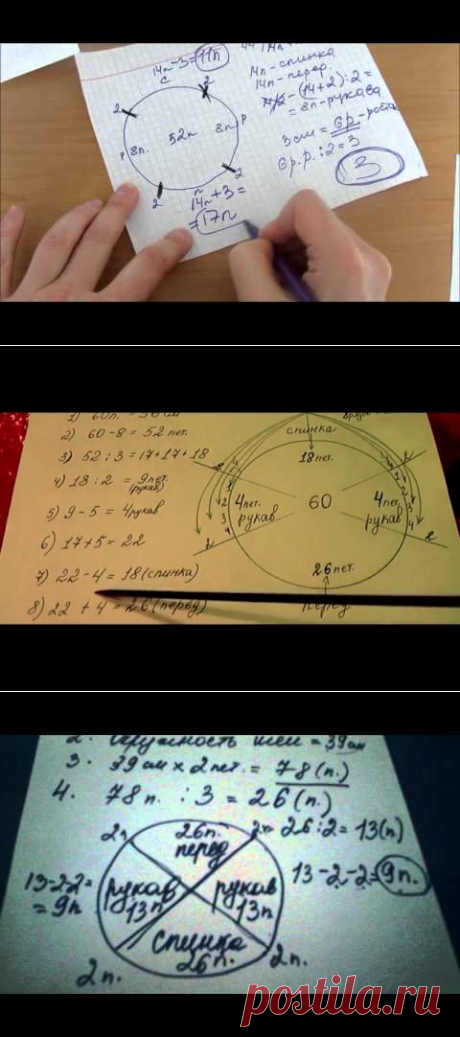 14п-3=11п
с
14п-спинка
14п-перед.
-(14+2):2=
=8п-рукава
3см=6р.-росток
6р.р.:2=3
3
2
2
р 8п.
52п
8п. р
2
2
п
14п+3=
=17п
2) 60-8=52 пет.
3) 52:3=17+17+18
4) 18:2=9пет.
(рукав)
5) 9-5=4рукав
6) 17+5=22
7) 22-4=18(спинка)
8) 22+4=26(перед)
спинка
18пет.
4пет.
рукав
60
4пет.
рукав
1
2
3
4
26пет.
перед
2. Окружность шеи=39см
3. 39см х 2пет.=78(п.)
4. 78п. :3=26(п.)
2п
26п.
перед
2п
26:2=13(п)
13-2-2=
=9п
рукав
13п
рукав
13п
13-2-2=9п.
спинка
26п.
2п.
2п.
postila.ru